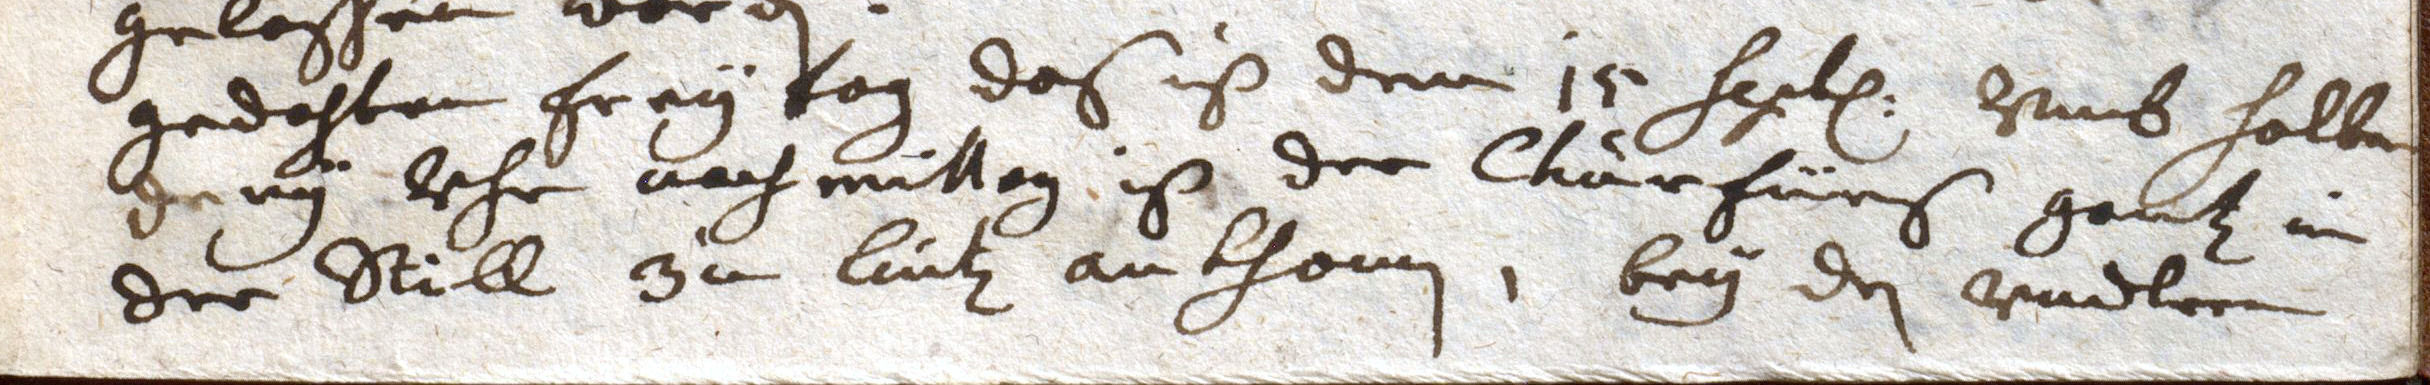 gelassen worden.
gedachten freÿtag das ist dem 15 Septem: vmb halben
dreÿ vhr nachmittag ist der Churfürst gantz in
der Still zu lintz ankhomen, beÿ den vndtern